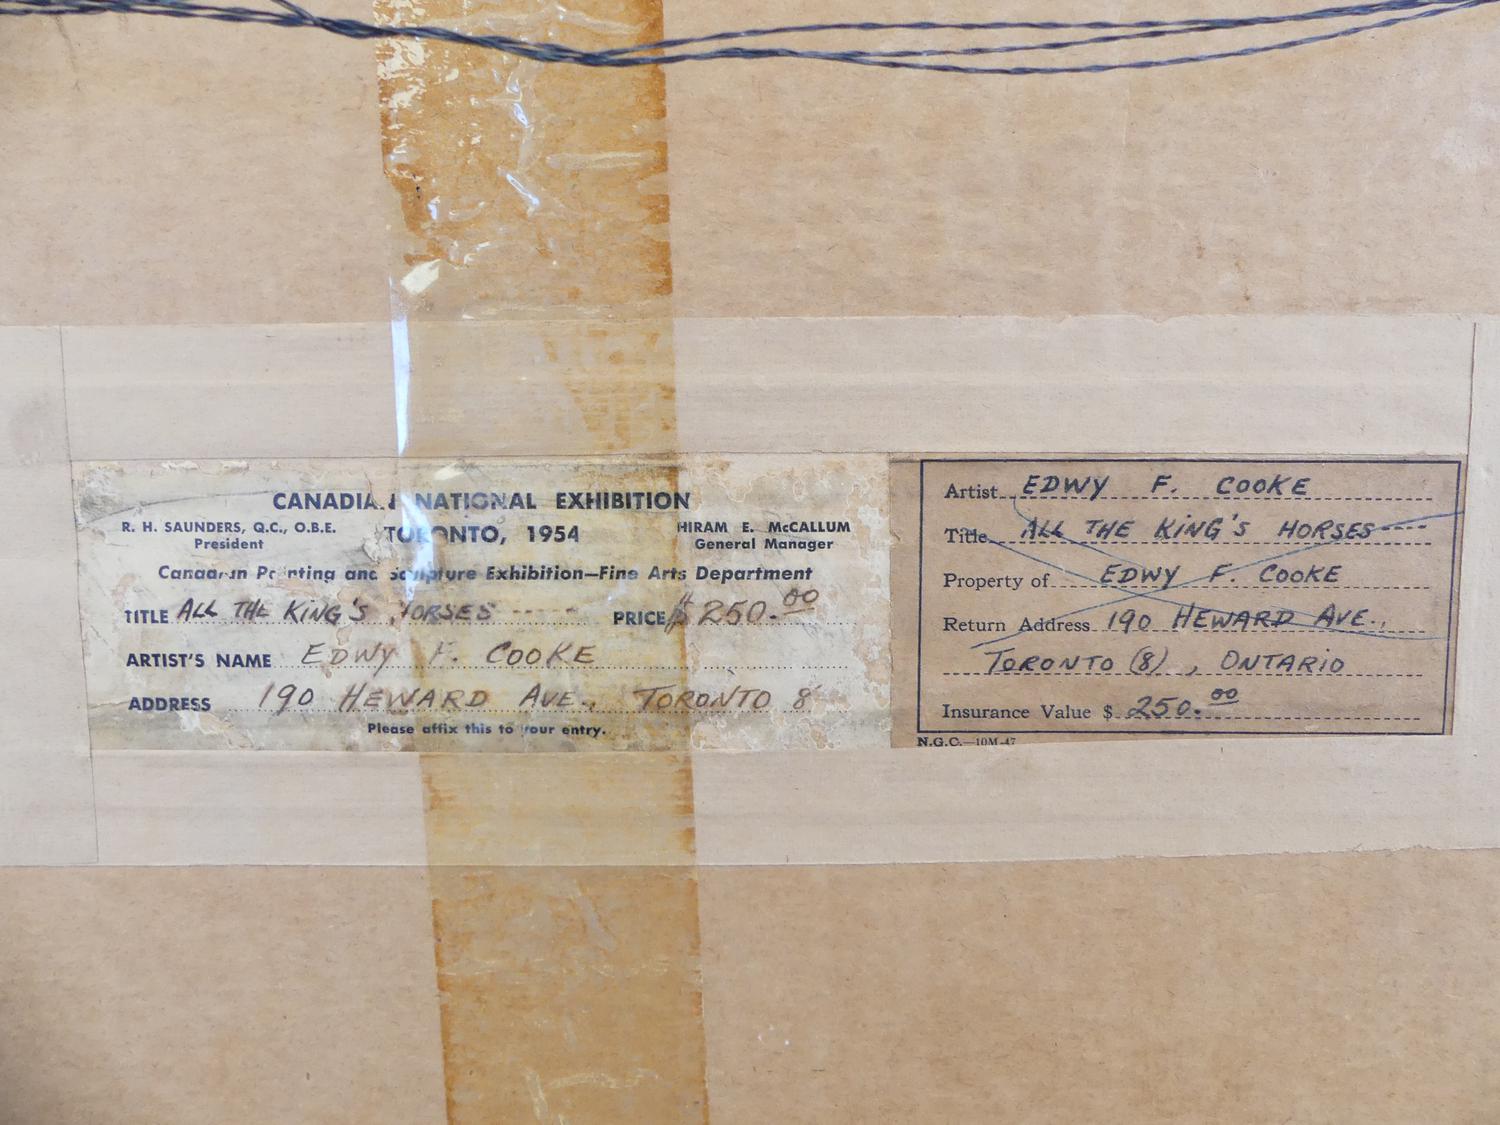 CANADIAN NATIONAL EXHIBITION
R. H. SAUNDERS, Q.C., O.B.E.
President
TORONTO, 1954
HIRAM E. McCALLUM
General Manager
Canadian Painting and Sculpture Exhibition—Fine Arts Department
TITLE ALL THE KING'S HORSES PRICE $250.00
ARTIST'S NAME EDWY F. COOKE
ADDRESS 190 HEWARD AVE., TORONTO 8
Please affix this to your entry.
Artist EDWY F. COOKE
Title ALL THE KING'S HORSES
Property of EDWY F. COOKE
Return Address 190 HEWARD AVE.,
TORONTO (8), ONTARIO
Insurance Value $ 250.00
N.G.C.—10M-47